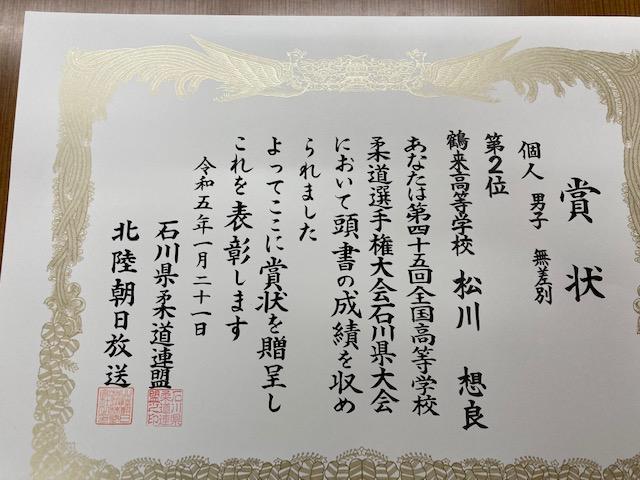 賞状
個人 男子 無差別
第2位
鶴来高等学校 松川 想良
あなたは第四十五回全国高等学校
柔道選手権大会石川県大会
において頭書の成績を収め
られました
よってここに賞状を贈呈し
これを表彰します
令和五年一月二十一日
石川県柔道連盟
北陸朝日放送
石川県柔道連盟之印